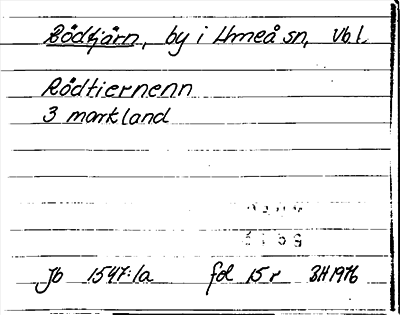 Rödtjärn, by i Umeå sn, Vbl
Rödtiernenn
3 markland
Jb 1547:1a fol 15 r BH 1976